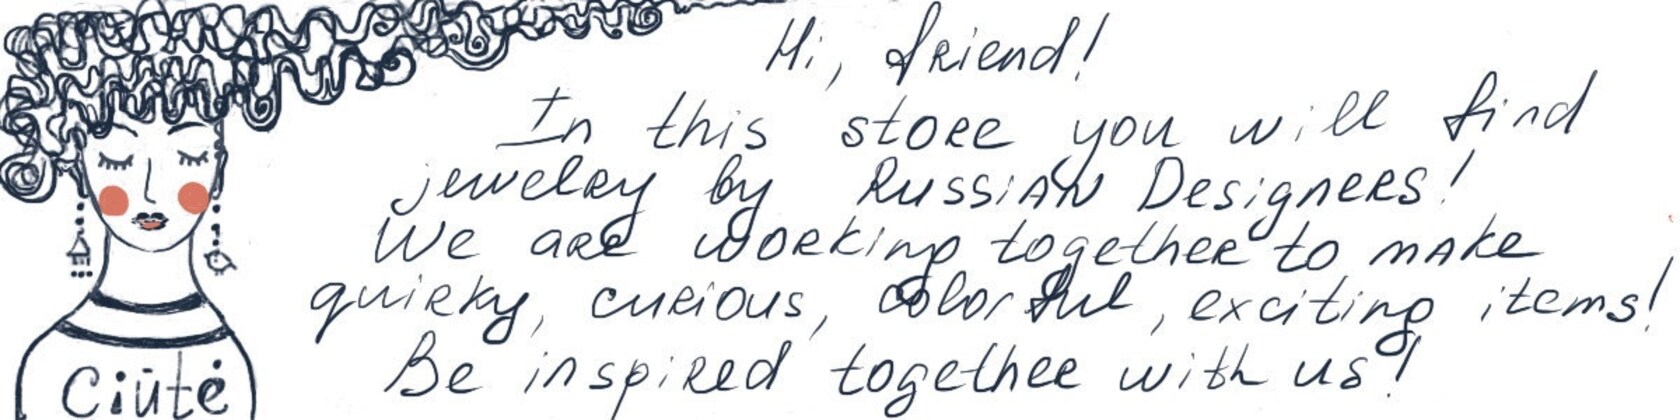 Hi, friend!
In this store you will find
jewelry by Russian Designers!
We are working together to make
quirky, curious, colorful, exciting items!
Be inspired together with us!
Ciūtė